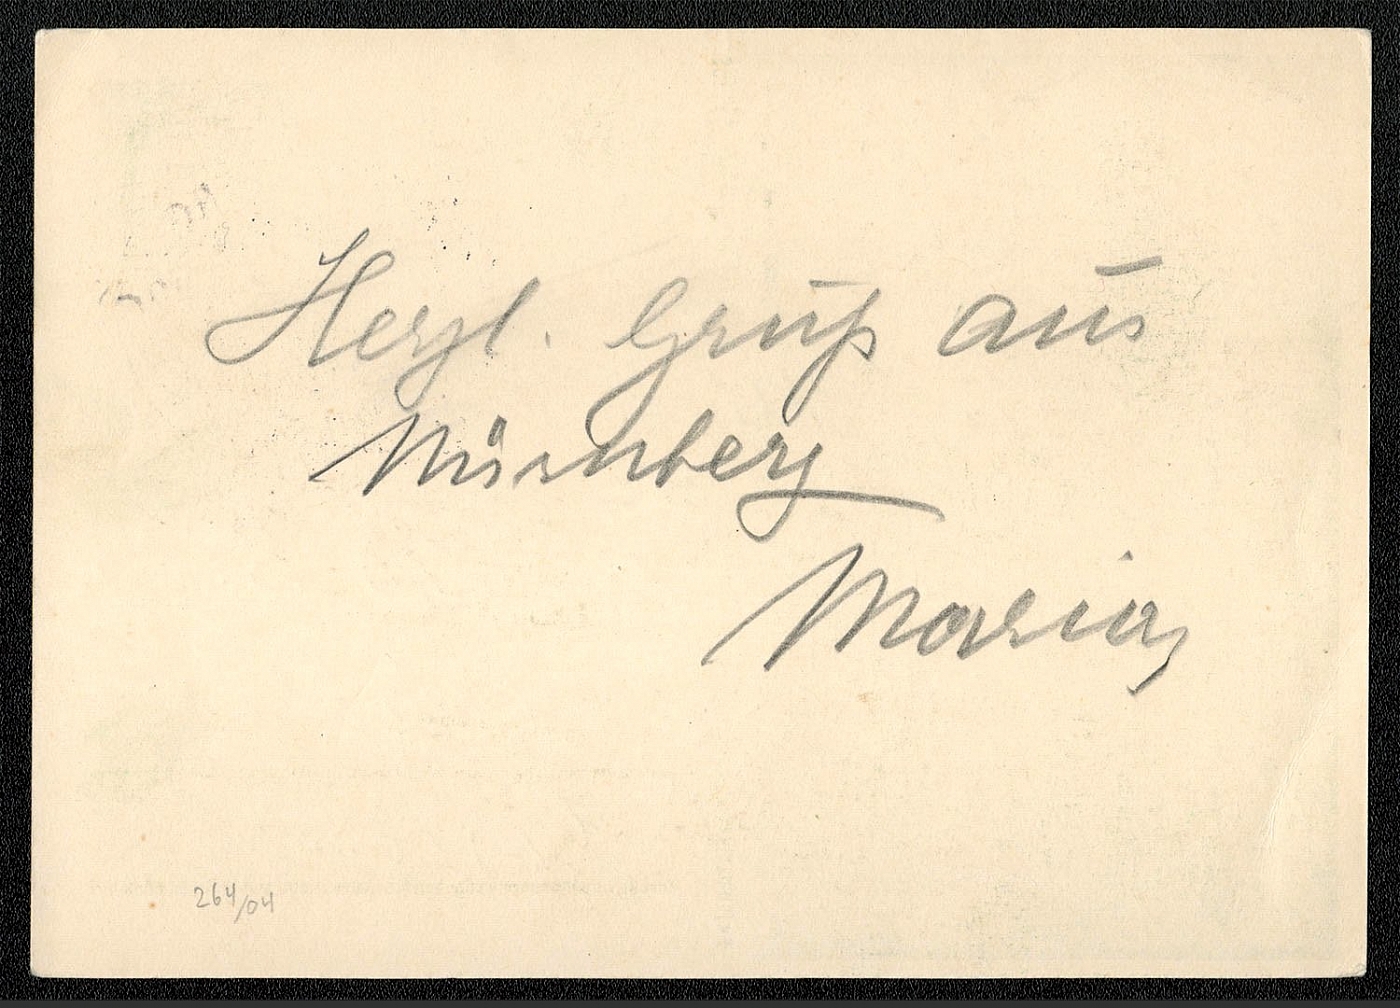 Herzl. Gruß aus
Nürnberg
Maria
264/04